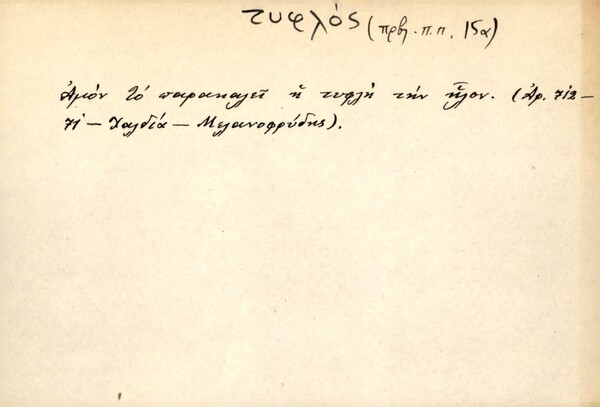 τυφλός (πρβλ. π.π. 15α)
Ἀμὸν τὸ παρακαλεῖ ἡ τυφλὴ τὴν ἧλον. (Ἀρ. 712 –
71 – Χαλδία – Μελανοφρύδης).